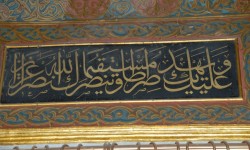 عليك ويهديك صراطا مستقيما وينصرك الله نصرا عزيزا